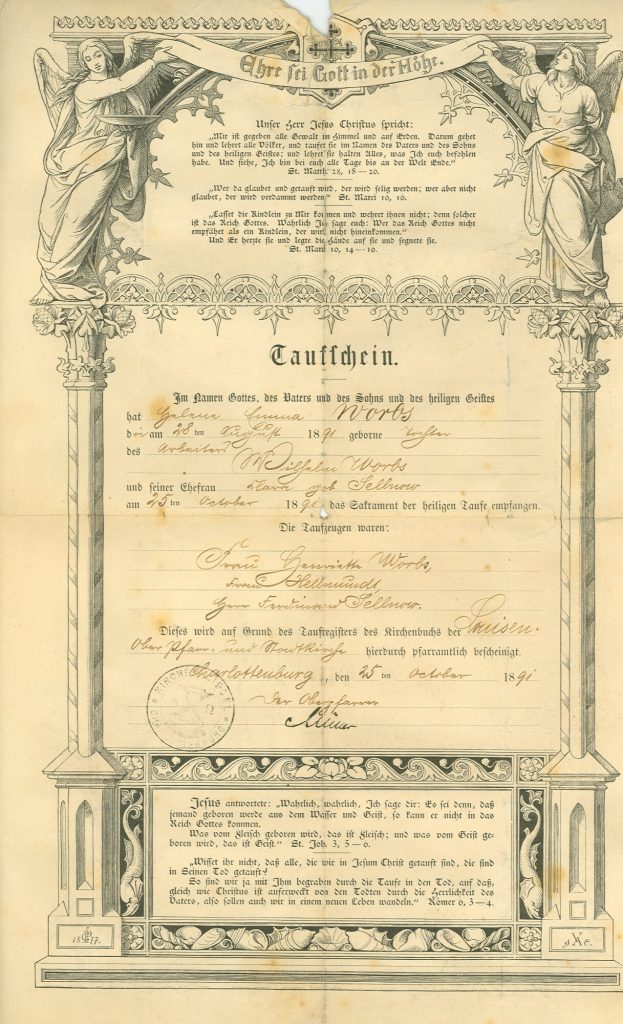 Ehre sei Gott in der Höhe.
Unser Herr Jesus Christus spricht:
„Mir ist gegeben alle Gewalt in Himmel und auf Erden. Darum gehet
hin und lehret alle Völker, und taufet sie im Namen des Vaters und des Sohns
und des heiligen Geistes; und lehret sie halten Alles, was Ich euch befohlen
habe. Und siehe, Ich bin bei euch alle Tage bis an der Welt Ende.“
St. Matth. 28, 18–20.
„Wer da glaubet und getauft wird, der wird selig werden; wer aber nicht
glaubet, der wird verdammt werden“ St. Marci 16, 16.
„Lasset die Kindlein zu Mir kommen und wehret ihnen nicht; denn solcher
ist das Reich Gottes. Wahrlich Ich sage euch: Wer das Reich Gottes nicht
empfähet als ein Kindlein, der wird nicht hineinkommen.“
Und Er herzte sie und legte die Hände auf sie und segnete sie.
St. Marci 10, 14–16.
Taufschein.
Im Namen Gottes, des Vaters und des Sohns und des heiligen Geistes
hat Helene Emma Worbs
die am 28 ten August 1891 geborne Tochter
des Arbeiters
Wilhelm Worbs
und seiner Ehefrau Klara geb Sellnow
am 25 ten October 1891 das Sakrament der heiligen Taufe empfangen.
Die Taufzeugen waren:
Frau Henriette Worbs,
Frau Hellmundt,
Herr Ferdinand Sellnow.
Dieses wird auf Grund des Taufregisters des Kirchenbuchs der Luisen-
Ober Pfarr- und Stadtkirche hierdurch pfarramtlich bescheinigt.
Charlottenburg, den 25 ten October 1891
Der Oberpfarrer
Jesus antwortete: „Wahrlich, wahrlich, Ich sage dir: Es sei denn, daß
jemand geboren werde aus dem Wasser und Geist, so kann er nicht in das
Reich Gottes kommen.
Was vom Fleisch geboren wird, das ist Fleisch; und was vom Geist ge-
boren wird, das ist Geist.“ St. Joh. 3, 5–6.
„Wisset ihr nicht, daß alle, die wir in Jesum Christ getauft sind, die sind
in Seinen Tod getauft?
So sind wir ja mit Ihm begraben durch die Taufe in den Tod, auf daß,
gleich wie Christus ist auferweckt von den Todten durch die Herrlichkeit des
Vaters, also sollen auch wir in einem neuen Leben wandeln.“ Römer 6, 3–4.
1877.